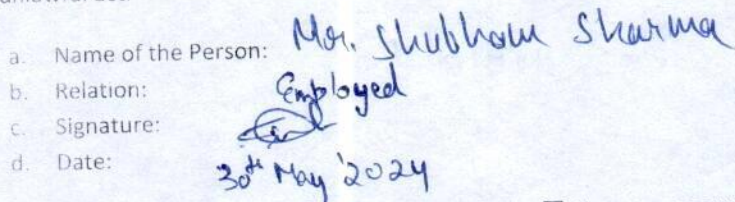 a. Name of the Person: Mr. Shubham Sharma
b. Relation: Employed
c. Signature:
d. Date: 30th May '2024